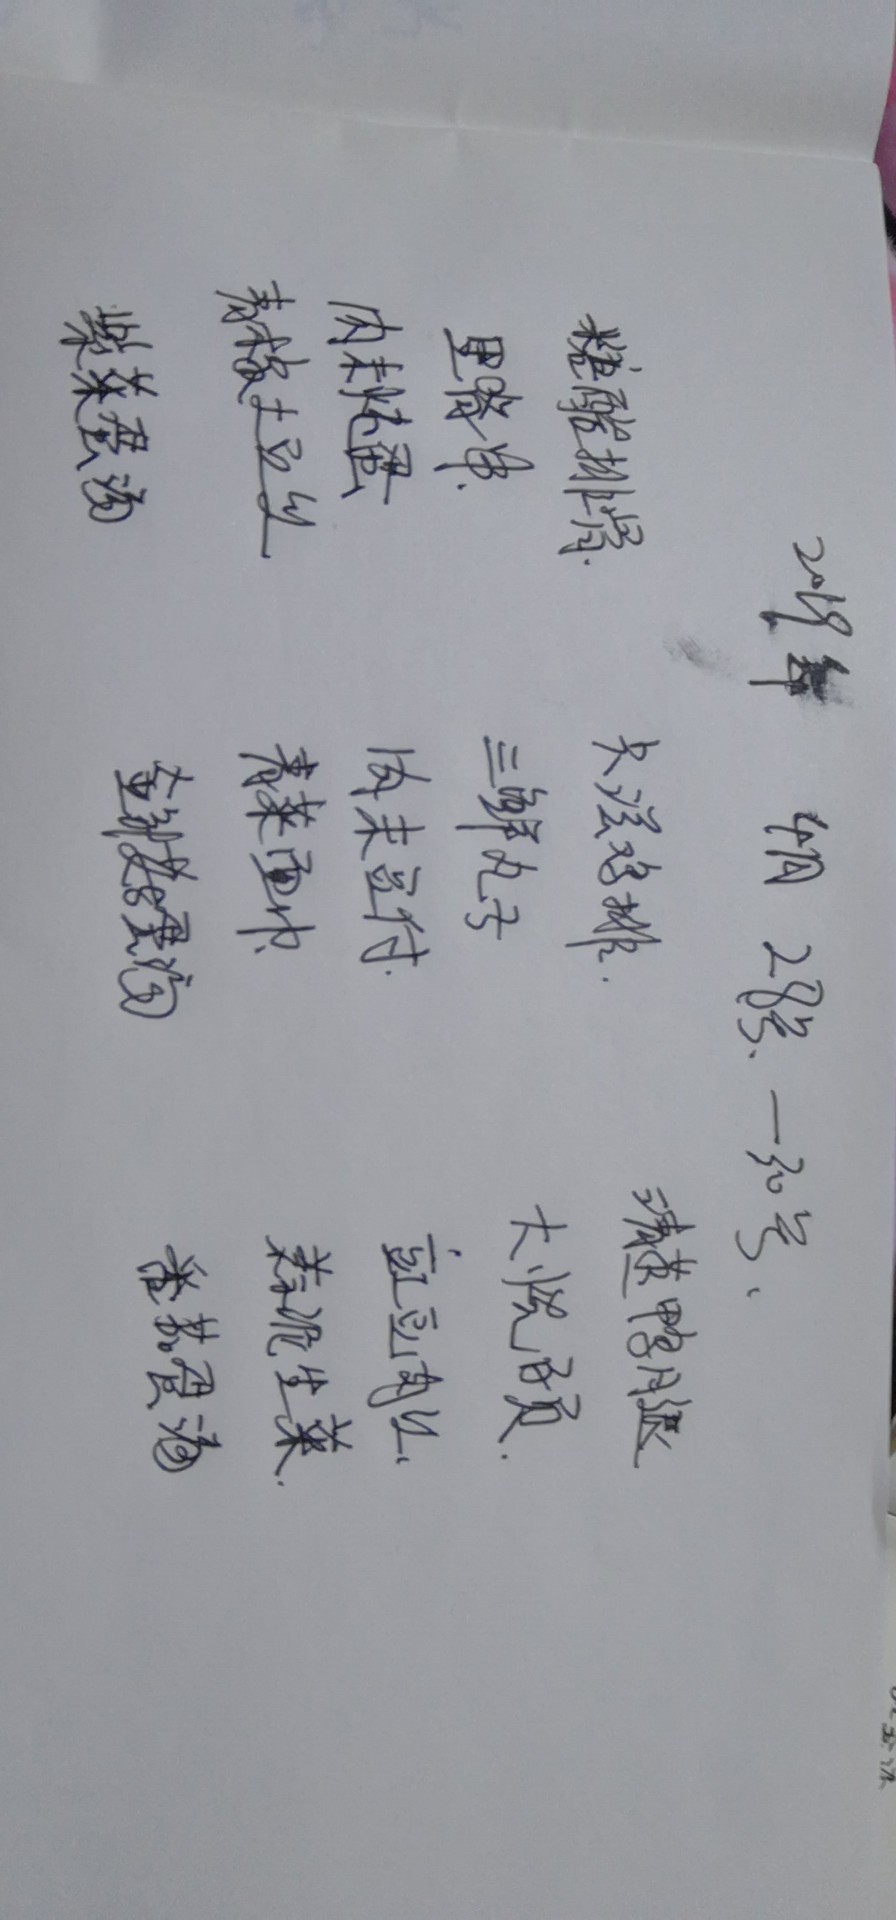 2019年 4月 28号、一30号、
糖醋排骨. 大派鸡排. 清蒸鸭月退
里脊串. 三鲜丸子 大悦百页.
肉末炖蛋 肉末豆付. 豇豆肉丝.
青椒土豆丝 青菜面巾. 蒜泥生菜.
紫菜蛋汤 金针菇蛋汤 番茄蛋汤